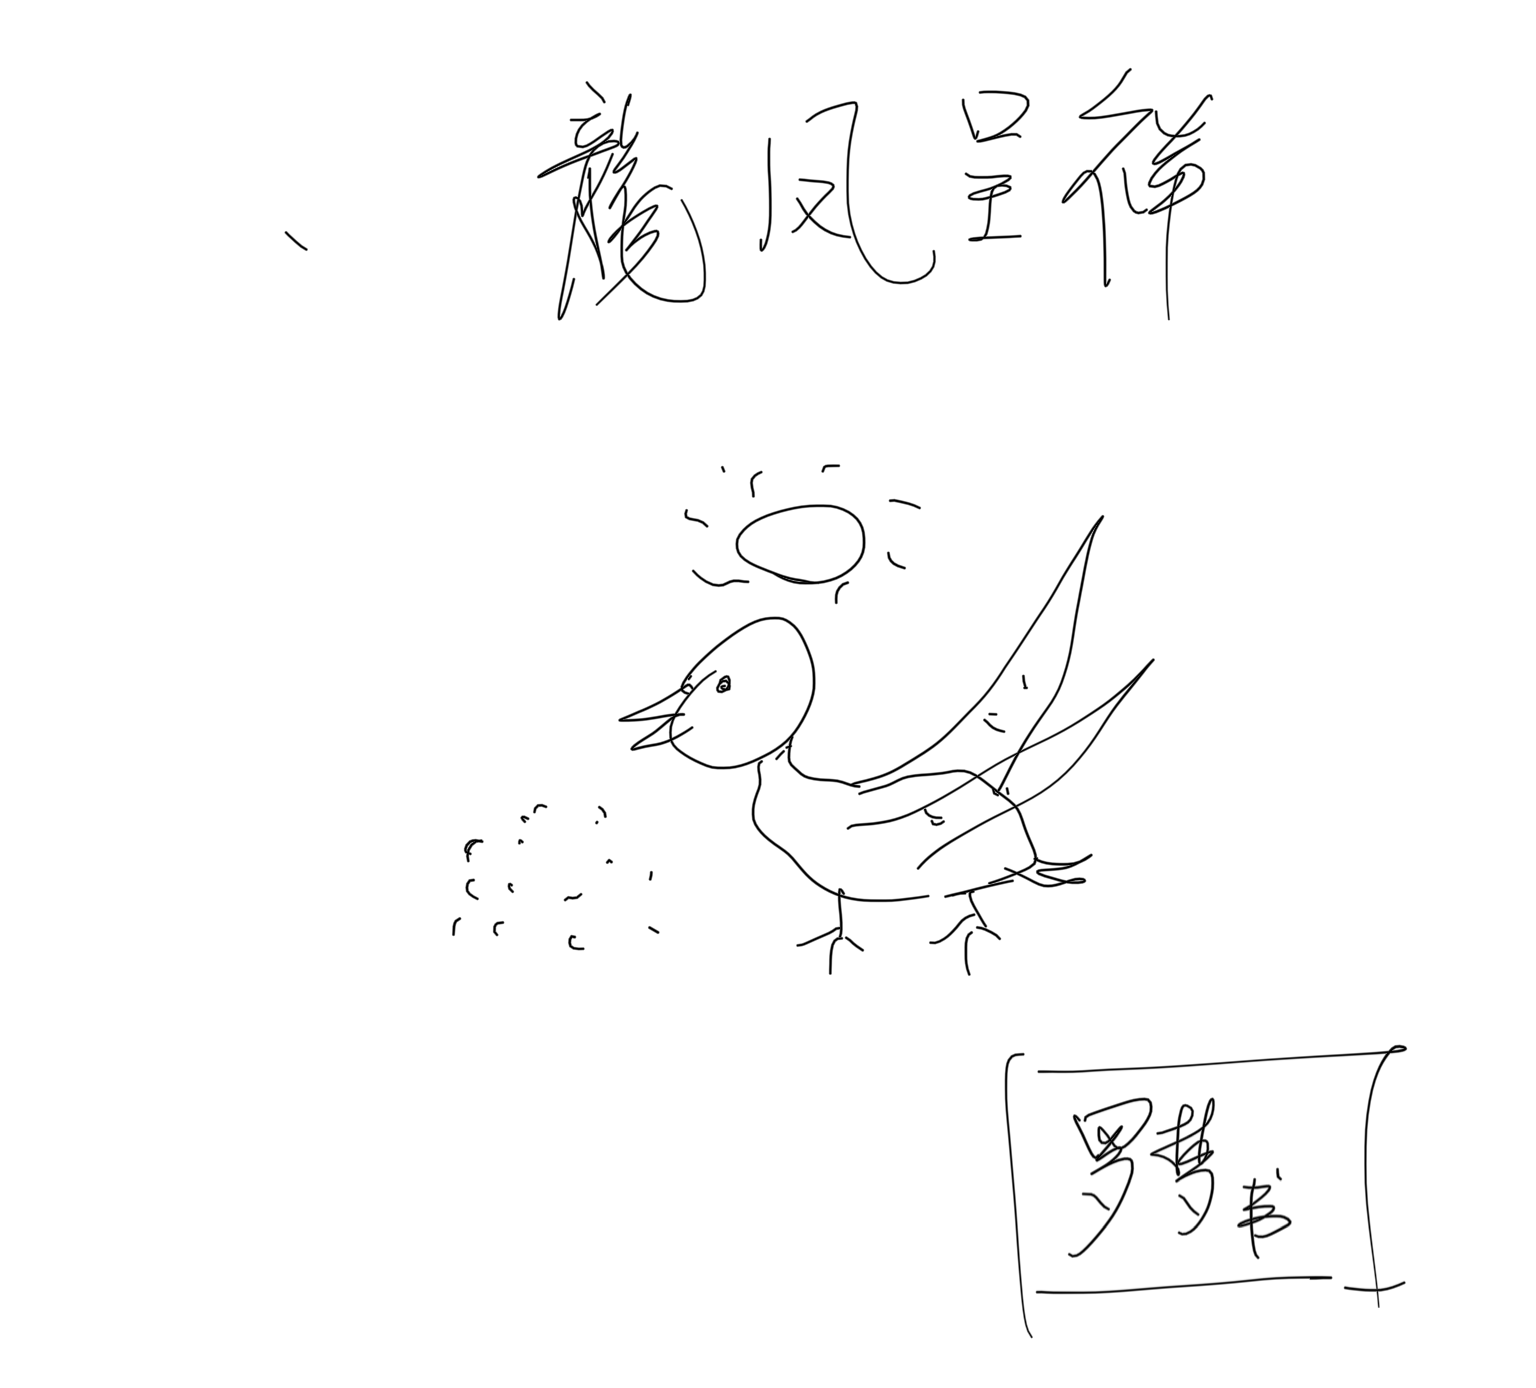 龍凤呈祥
罗梦书